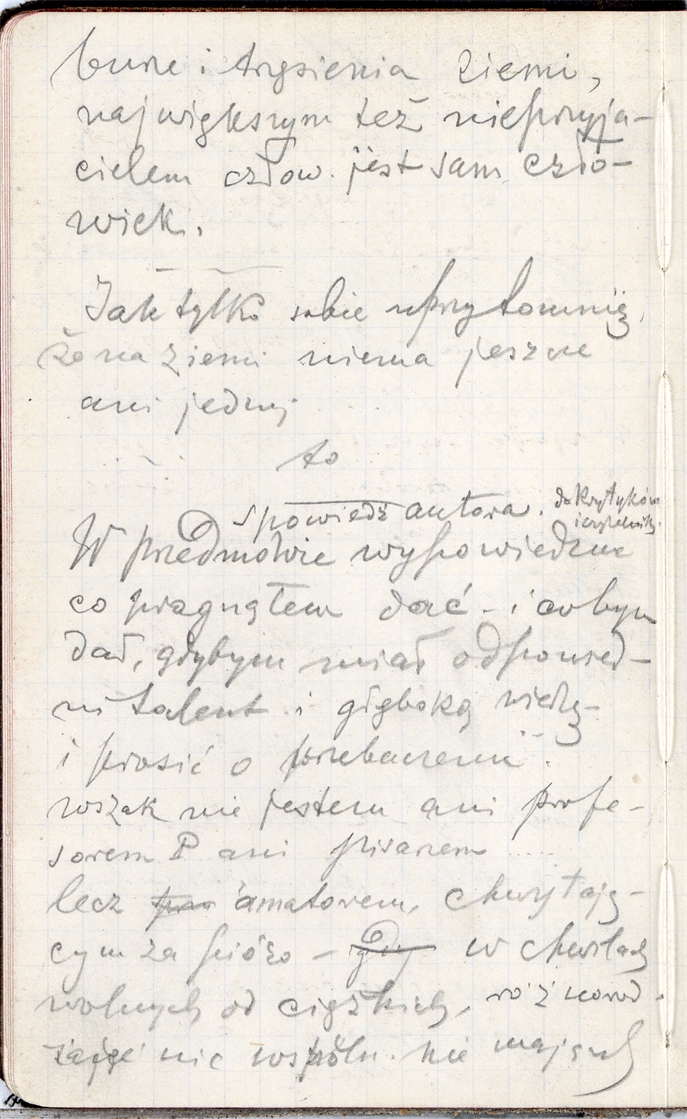 burze i trzęsienia ziemi,
największym też nieprzyja-
cielem człow. jest sam czło-
wiek.
Jak tylko sobie uprzytomnię,
że na ziemi niema jeszcze
ani jednej
to
spowiedź autora. do krytyków
i czytelników
W przedmowie wypowiedzieć
co pragnąłem dać - i co bym
dał, gdybym miał odpowied-
ni talent i głęboką wiedzę -
i prosić o przebaczenie.
wszak nie jestem ani profe-
sorem P ani pisarzem ....
lecz amatorem, chwytają-
cym za pióro - gdy w chwilach
wolnych od ciężkich, różnorod.
zajęć nic wspóln. nie mających